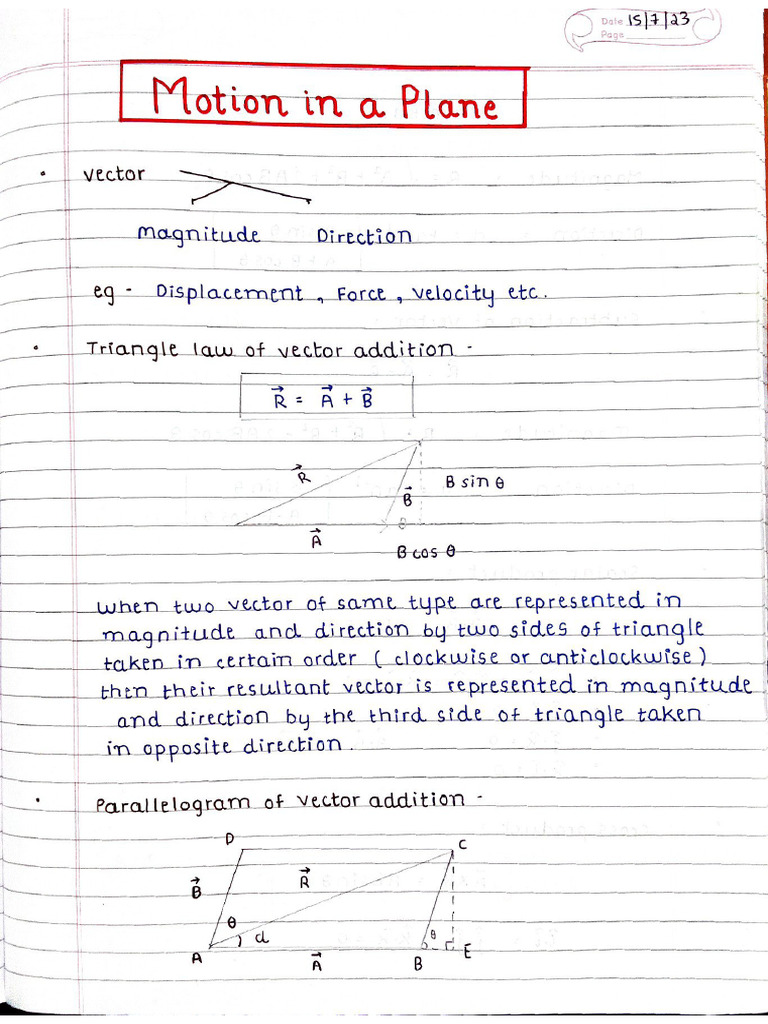 Date 15/7/23
Page
Motion in a Plane
• vector
magnitude Direction
eg - Displacement, Force, velocity etc.
• Triangle law of vector addition -
R⃗ = A⃗ + B⃗
R⃗
B⃗ B sin θ
θ
A⃗
B cos θ
when two vector of same type are represented in
magnitude and direction by two sides of triangle
taken in certain order ( clockwise or anticlockwise )
then their resultant vector is represented in magnitude
and direction by the third side of triangle taken
in opposite direction.
• Parallelogram of vector addition -
D C
B⃗ R⃗
θ α θ
A A⃗ B E